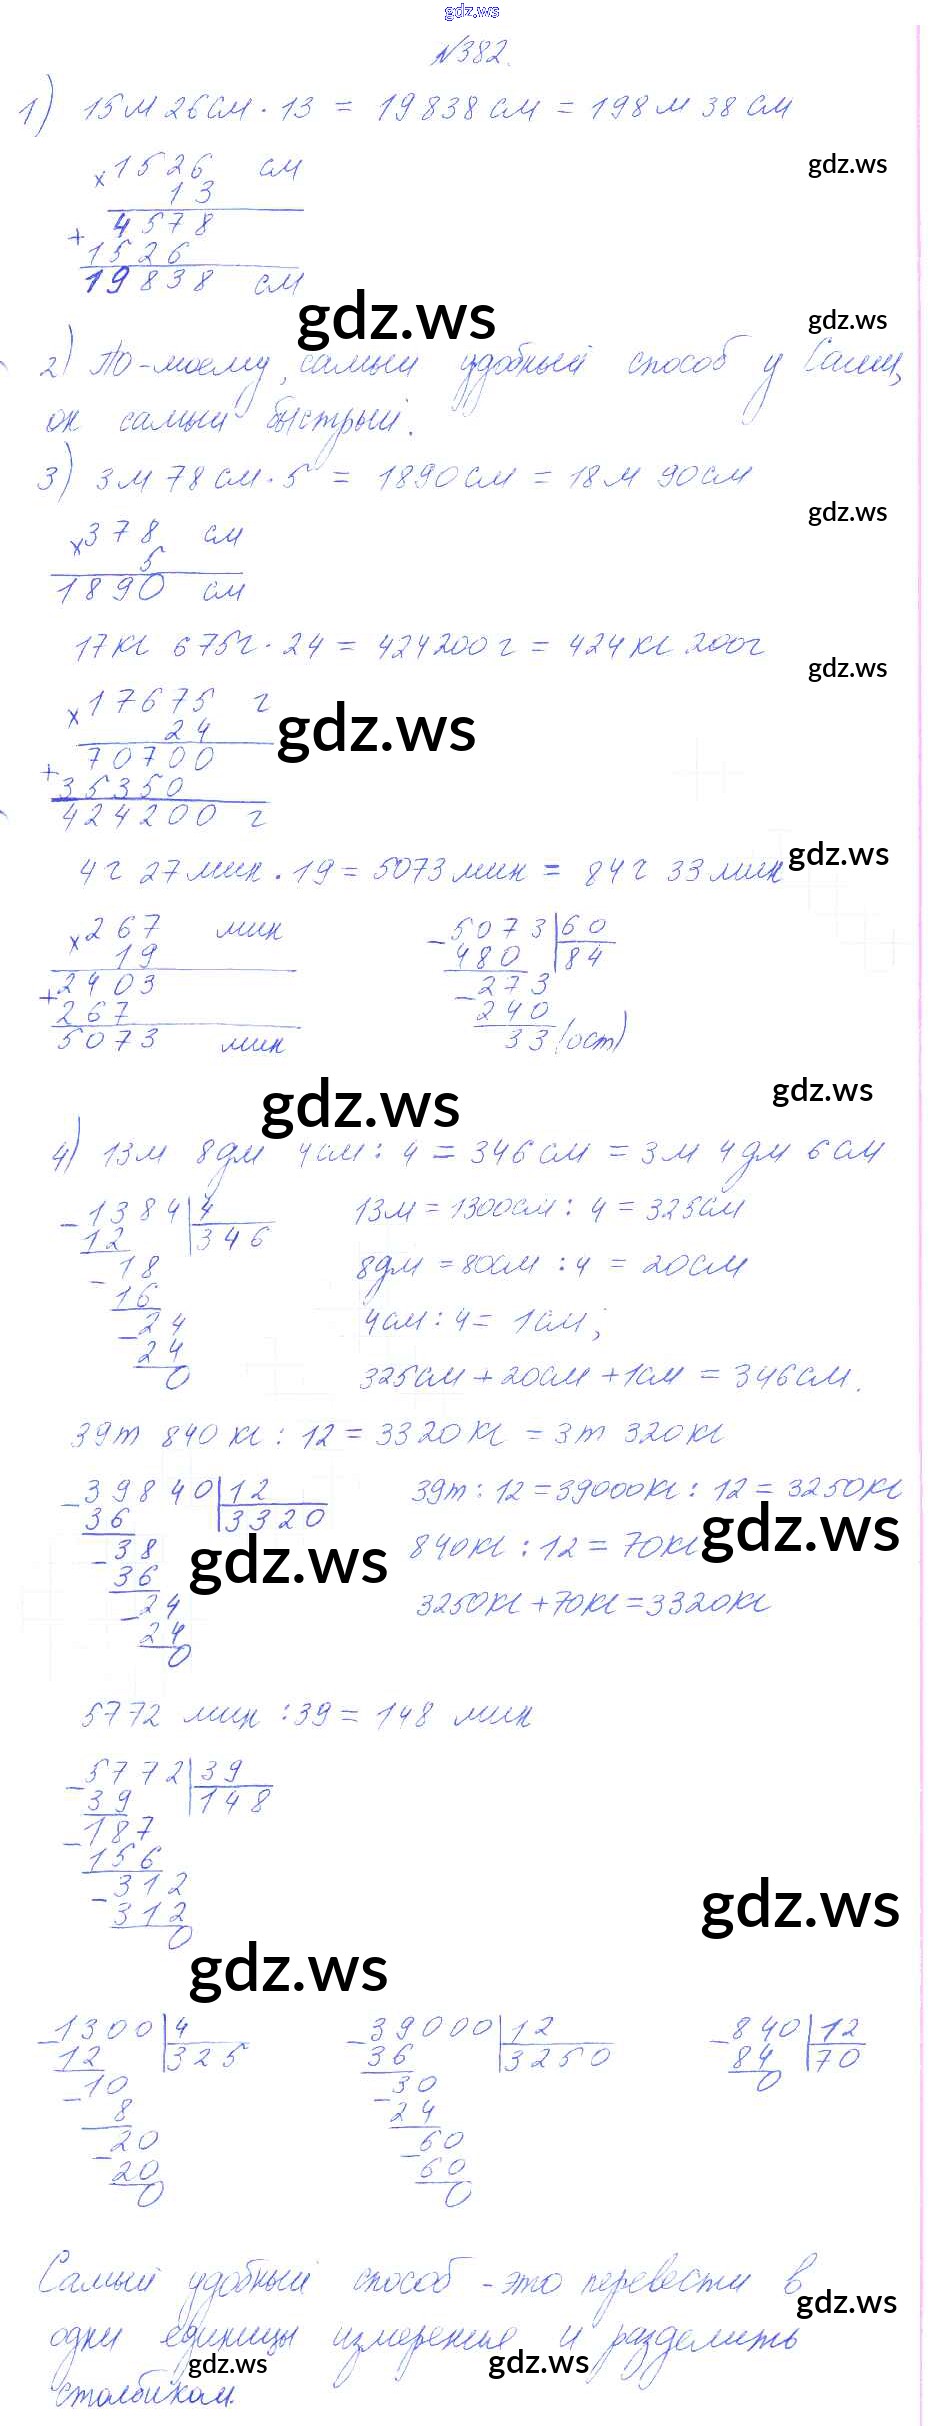 gdz.ws
№382.
1) 15 м 26 см · 13 = 19838 см = 198 м 38 см
gdz.ws
× 1526 см
13
+ 4578
1526
19838 см
gdz.ws
gdz.ws
2) По-моему, самый удобный способ у Саши,
он самый быстрый.
3) 3 м 78 см · 5 = 1890 см = 18 м 90 см
gdz.ws
× 378 см
5
1890 см
17 кг 675 г · 24 = 424200 г = 424 кг 200 г
gdz.ws
× 17675 г
24
gdz.ws
+ 70700
35350
424200 г
gdz.ws
4 ч 27 мин · 19 = 5073 мин = 84 ч 33 мин
× 267 мин
19
+ 2403
267
5073 мин
- 5073 | 60
480 | 84
- 273
240
33 (ост)
gdz.ws
gdz.ws
4) 13 м 8 дм 4 см : 4 = 346 см = 3 м 4 дм 6 см
- 1384 | 4
12 | 346
- 18
16
- 24
24
0
13 м = 1300 см : 4 = 325 см
8 дм = 80 см : 4 = 20 см
4 см : 4 = 1 см;
325 см + 20 см + 1 см = 346 см.
39 т 840 кг : 12 = 3320 кг = 3 т 320 кг
- 39840 | 12
36 | 3320
- 38
36
- 24
24
0
39 т : 12 = 39000 кг : 12 = 3250 кг
840 кг : 12 = 70 кг
3250 кг + 70 кг = 3320 кг
gdz.ws
gdz.ws
5772 мин : 39 = 148 мин
- 5772 | 39
39 | 148
- 187
156
- 312
312
0
gdz.ws
gdz.ws
- 1300 | 4
12 | 325
- 10
8
- 20
20
0
- 39000 | 12
36 | 3250
- 30
24
- 60
60
0
- 840 | 12
84 | 70
0
Самый удобный способ - это перевести в
gdz.ws
одни единицы измерение и разделить
gdz.ws
gdz.ws
столбиком.